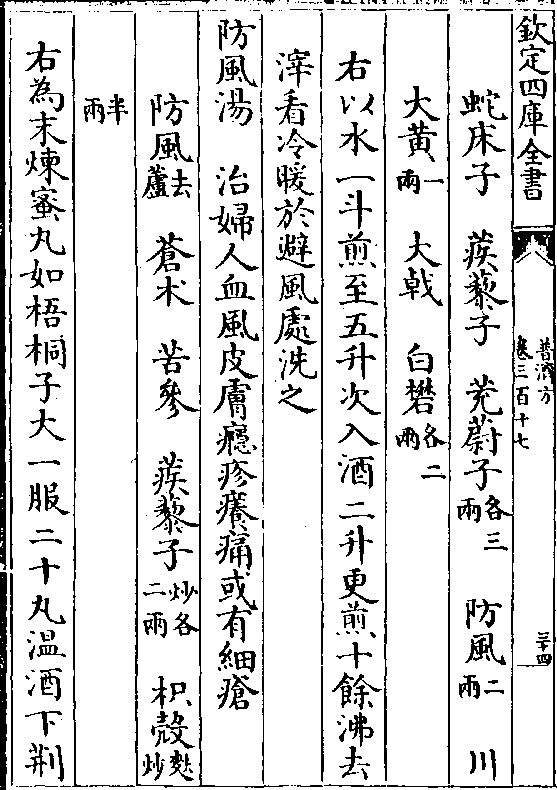 欽定四庫全書
普濟方
卷三百十七
三十四
蛇床子 蒺藜子 茺蔚子各三兩 防風二兩 川
大黃一兩 大戟 白礬各二兩
右以水一斗煎至五升次入酒二升更煎十餘沸去
滓看冷暖於避風處洗之
防風湯 治婦人血風皮膚癮疹癢痛或有細瘡
防風去蘆 蒼术 苦參 蒺藜子炒各二兩 枳殼麩炒
半兩
右為末煉蜜丸如梧桐子大一服二十丸溫酒下荆